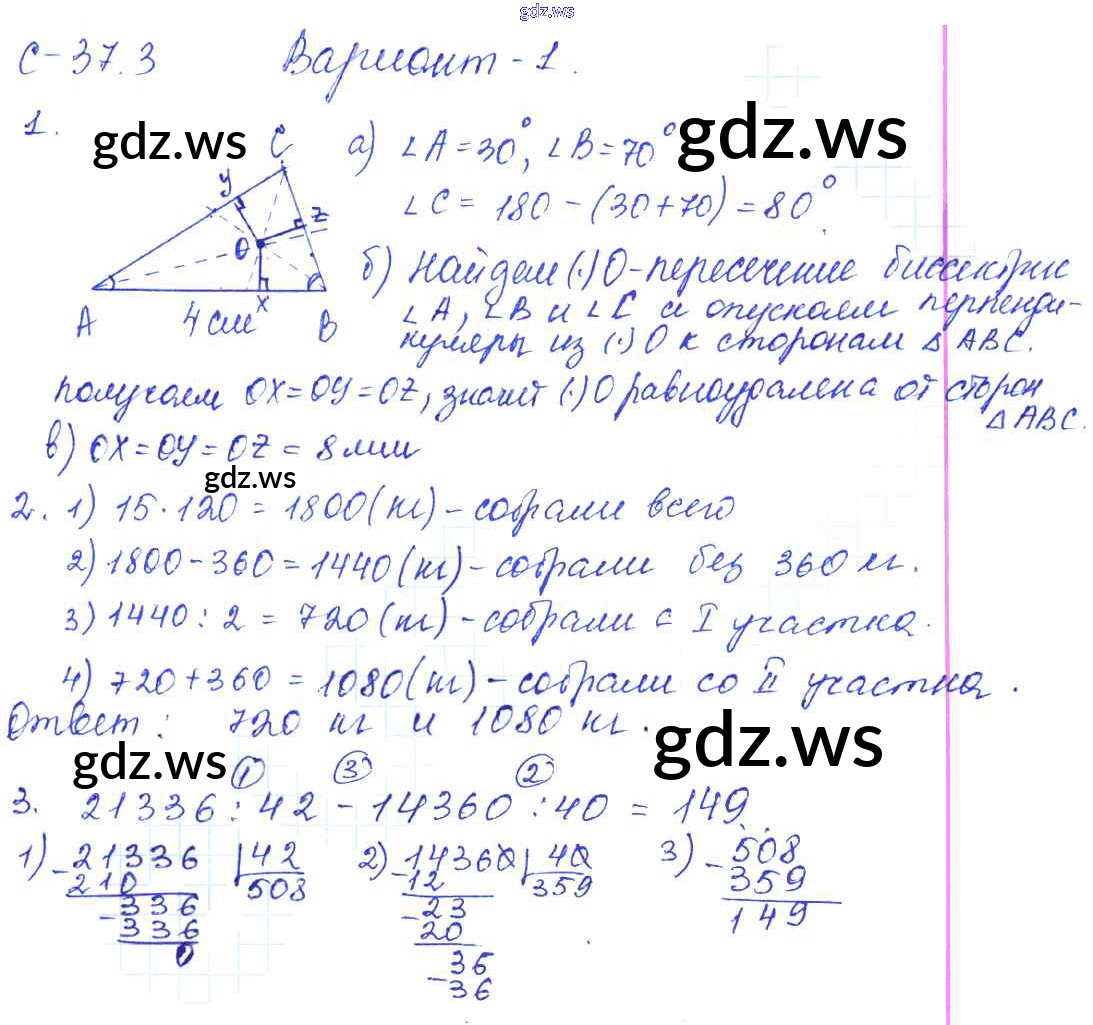 gdz.ws
С-37.3 Вариант-1.
1.
gdz.ws
gdz.ws
C
y
z
O
A
4 см
x
B
а) ∠A = 30°, ∠B = 70°
∠C = 180 - (30+70) = 80°.
б) Найдем (·) O - пересечение биссектрис
∠A, ∠B и ∠C и опускаем перпенди-
куляры из (·) O к сторонам △ABC.
получаем OX=OY=OZ, значит (·) O равноудалена от сторон
△ABC.
в) OX=OY=OZ = 8 мм
gdz.ws
2. 1) 15·120 = 1800 (кг) - собрали всего
2) 1800-360 = 1440 (кг) - собрали без 360 кг.
3) 1440 : 2 = 720 (кг) - собрали с I участка.
4) 720+360 = 1080 (кг) - собрали со II участка.
Ответ: 720 кг и 1080 кг.
gdz.ws
gdz.ws
① ③ ②
3. 21336 : 42 - 14360 : 40 = 149
1) - 21336 | 42 2) - 14360 | 40 3) - 508
210 508 12 359 359
- 336 - 23 149
336 20
0 - 36
36